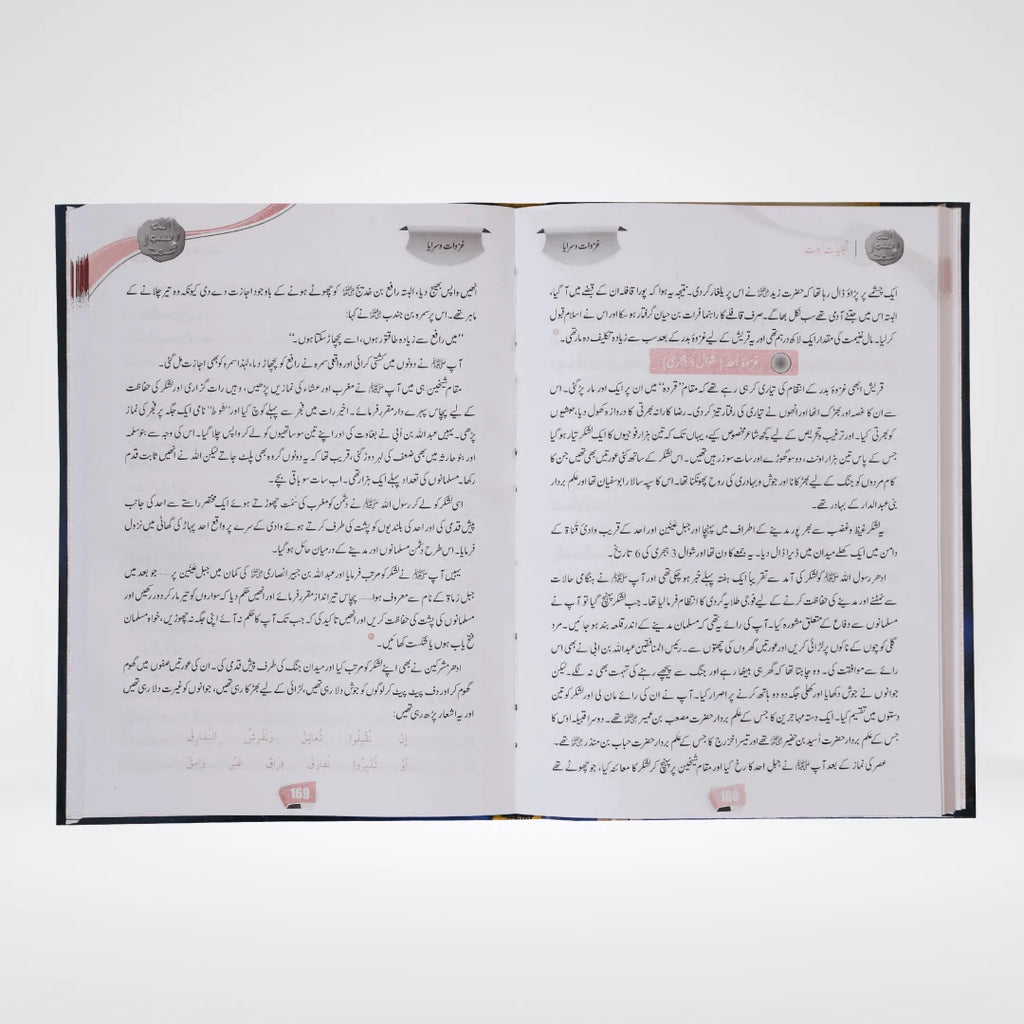 تجلیات نبوت
غزوات و سرایا
ایک چشمے پر پڑاؤ ڈال رہا تھا کہ حضرت زید رضی اللہ عنہ نے اس پر یلغار کر دی۔ نتیجہ یہ ہوا کہ پورا قافلہ ان کے قبضے میں آ گیا،
البتہ اس میں جتنے آدمی تھے سب نکل بھاگے۔ صرف قافلے کا راہنما فرات بن حیان گرفتار ہو سکا اور اس نے اسلام قبول
کر لیا۔ مالِ غنیمت کی مقدار ایک لاکھ درہم تھی اور یہ قریش کے لیے غزوۂ بدر کے بعد سب سے زیادہ تکلیف دہ مار تھی۔
غزوۂ احد (شوال 3 ہجری)
قریش ابھی غزوۂ بدر کے انتقام کی تیاری کر ہی رہے تھے کہ مقام ”قردہ“ میں ان پر ایک اور مار پڑ گئی۔ اس
سے ان کا غصہ اور بھڑک اٹھا اور انھوں نے تیاری کی رفتار تیز کر دی۔ رضا کارانہ بھرتی کا دروازہ کھول دیا، حبشیوں
کو بھرتی کیا۔ اور ترغیب و تحریض کے لیے کچھ شاعر مخصوص کیے، یہاں تک کہ تین ہزار فوجیوں کا ایک لشکر تیار ہو گیا
جس کے پاس تین ہزار اونٹ، دو سو گھوڑے اور سات سو زرہیں تھیں۔ اس لشکر کے ساتھ کئی عورتیں بھی تھیں جن کا
کام مردوں کو جنگ کے لیے بھڑکانا اور جوش و بہادری کی روح پھونکنا تھا۔ اس کا سپہ سالار ابوسفیان تھا اور علم بردار
بنی عبدالدار کے بہادر تھے۔
یہ لشکر غیظ و غضب سے بھرپور مدینے کے اطراف میں پہنچا اور جبل عَینَین اور احد کے قریب وادیٔ قَناۃ کے
دامن میں ایک کھلے میدان میں ڈیرا ڈال دیا۔ یہ جمعے کا دن تھا اور شوال 3 ہجری کی 6 تاریخ۔
ادھر رسول اللہ ﷺ کو لشکر کی آمد سے تقریباً ایک ہفتہ پہلے خبر ہو چکی تھی اور آپ ﷺ نے ہنگامی حالات
سے نمٹنے اور مدینے کی حفاظت کرنے کے لیے فوجی طلایہ گردی کا انتظام فرما لیا تھا۔ جب لشکر پہنچ گیا تو آپ نے
مسلمانوں سے دفاع کے متعلق مشورہ کیا۔ آپ کی رائے یہ تھی کہ مسلمان مدینے کے اندر قلعہ بند ہو جائیں۔ مرد
گلی کوچوں کے ناکوں پر لڑائی کریں اور عورتیں گھروں کی چھتوں سے۔ رئیس المنافقین عبداللہ بن ابی نے بھی اس
رائے سے موافقت کی۔ وہ چاہتا تھا کہ گھر ہی بیٹھا رہے اور جنگ سے پیچھے رہنے کی تہمت بھی نہ لگے۔ لیکن
جوانوں نے جوش دکھایا اور کھلی جگہ دو دو ہاتھ کرنے پر اصرار کیا۔ آپ نے ان کی رائے مان لی اور لشکر کو تین
دستوں میں تقسیم کیا۔ ایک دستہ مہاجرین کا جس کے علم بردار حضرت مصعب بن عمیر رضی اللہ عنہ تھے۔ دوسرا قبیلہ اوس کا
جس کے علم بردار حضرت اُسید بن حضیر رضی اللہ عنہ تھے اور تیسرا خزرج کا جس کے علم بردار حضرت حباب بن منذر رضی اللہ عنہ تھے۔
عصر کی نماز کے بعد آپ ﷺ نے جبل احد کا رخ کیا اور مقام شیخین پر پہنچ کر لشکر کا معائنہ کیا، جو چھوٹے تھے
168
غزوات و سرایا
اُنھیں واپس بھیج دیا، البتہ رافع بن خدیج رضی اللہ عنہ کو چھوٹے ہونے کے باوجود اجازت دے دی کیونکہ وہ تیر چلانے کے
ماہر تھے۔ اس پر سمرہ بن جندب رضی اللہ عنہ نے کہا:
”میں رافع سے زیادہ طاقتور ہوں، اسے پچھاڑ سکتا ہوں۔“
آپ ﷺ نے دونوں میں کشتی کرائی اور واقعی سمرہ نے رافع کو پچھاڑ دیا، لہٰذا سمرہ کو بھی اجازت مل گئی۔
مقام شیخین ہی میں آپ ﷺ نے مغرب اور عشاء کی نمازیں پڑھیں، وہیں رات گزاری اور لشکر کی حفاظت
کے لیے پچاس پہرے دار مقرر فرمائے۔ اخیر رات میں فجر سے پہلے کوچ کیا اور ”شوط“ نامی ایک جگہ پر فجر کی نماز
پڑھی۔ یہیں عبداللہ بن اُبی نے بغاوت کی اور اپنے تین سو ساتھیوں کو لے کر واپس چلا گیا۔ اس کی وجہ سے بنو سلمہ
اور بنو حارثہ میں بھی ضعف کی لہر دوڑ گئی، قریب تھا کہ یہ دونوں گروہ بھی پلٹ جاتے لیکن اللہ نے انھیں ثابت قدم
رکھا۔ مسلمانوں کی تعداد پہلے ایک ہزار تھی۔ اب سات سو باقی بچے۔
اسی لشکر کو لے کر رسول اللہ ﷺ نے دشمن کو مغرب کی سَمت چھوڑتے ہوئے ایک مختصر راستے سے احد کی جانب
پیش قدمی کی اور احد کی بلندیوں کو پشت کی طرف کرتے ہوئے وادی کے سرے پر واقع احد پہاڑ کی گھاٹی میں نزول
فرمایا۔ اس طرح دشمن مسلمانوں اور مدینے کے درمیان حائل ہو گیا۔
یہیں آپ ﷺ نے لشکر کو مرتب فرمایا اور عبداللہ بن جبیر انصاری رضی اللہ عنہ کی کمان میں جبل عَینَین پر ..... جو بعد میں
جبل رماۃ کے نام سے معروف ہوا...... پچاس تیرانداز مقرر فرمائے اور انھیں حکم دیا کہ سواروں کو تیر مار کر دور رکھیں اور
مسلمانوں کی پشت کی حفاظت کریں اور انھیں تاکید کی کہ جب تک آپ کا حکم نہ آئے اپنی جگہ نہ چھوڑیں، خواہ مسلمان
فتح یاب ہوں یا شکست کھائیں۔
ادھر مشرکین نے بھی اپنے لشکر کو مرتب کیا اور میدان جنگ کی طرف پیش قدمی کی۔ ان کی عورتیں صفوں میں گھوم
گھوم کر اور دف پیٹ پیٹ کر لوگوں کو جوش دلا رہی تھیں، لڑائی کے لیے بھڑکا رہی تھیں، جوانوں کو غیرت دلا رہی تھیں
اور یہ اشعار پڑھ رہی تھیں:
إِنْ تُقْبِلُوا نُعَانِقْ وَنَفْرِشُ النَّمَارِقْ
أَوْ تُدْبِرُوا نُفَارِقْ فِرَاقَ غَيْرِ وَامِقْ
169